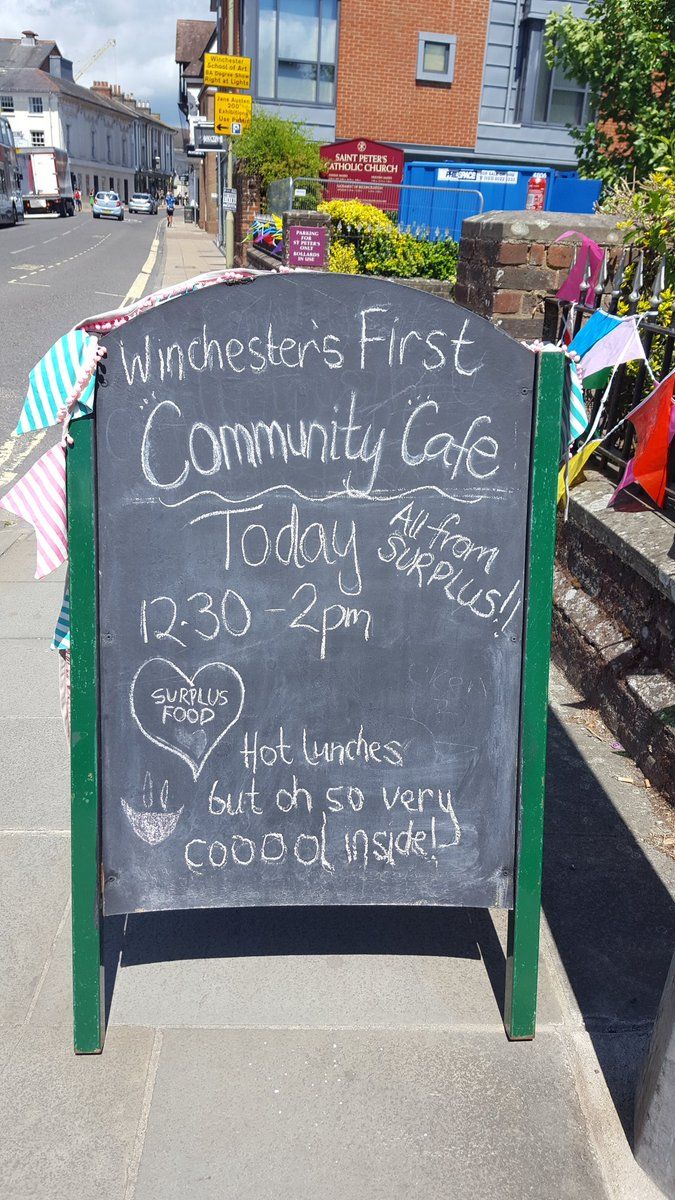 Winchester
School of Art
BA Degree Show
Right at Lights
Jane Austen
200
Exhibition
Use Public
P
SAINT PETER'S
CATHOLIC CHURCH
PARKING
FOR
ST PETER'S
ONLY
BOLLARDS
IN USE
Winchester's First
Community Cafe
Today
All from
SURPLUS!!
12.30-2pm
SURPLUS
FOOD
Hot lunches
but oh so very
cooool inside!